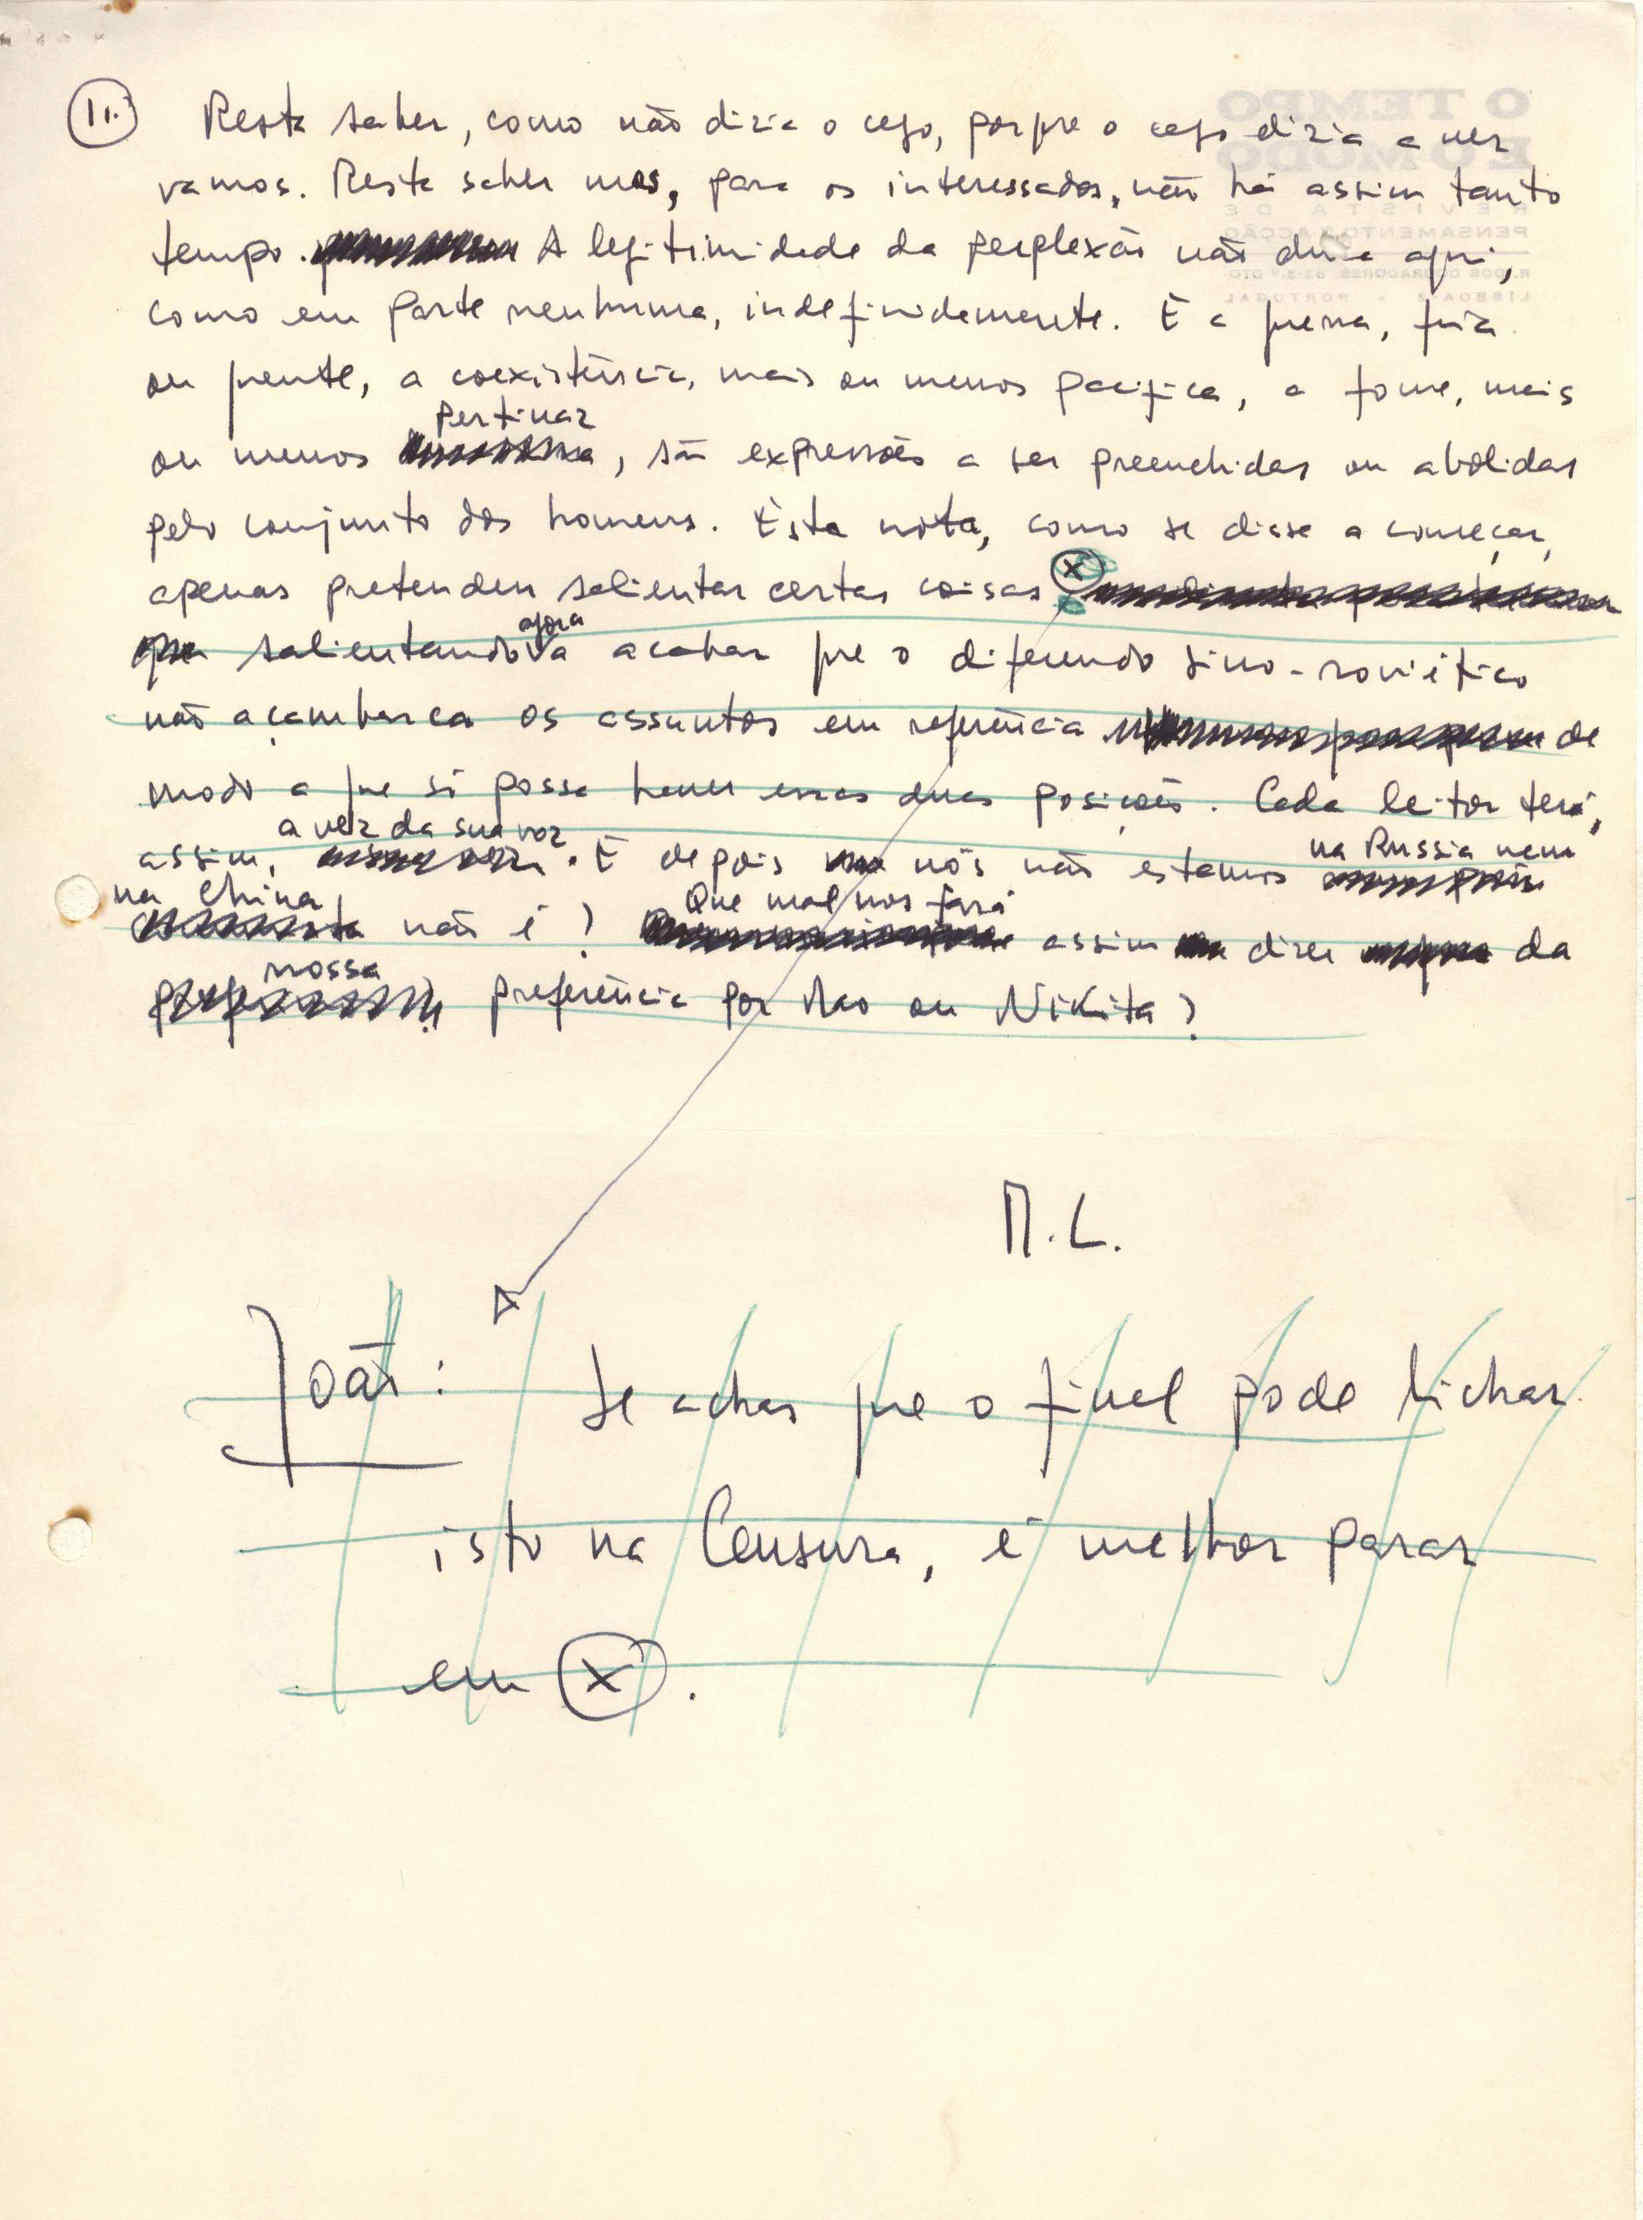 11.
Resta saber, como não diria o cego, porque o cego diria a ver
vamos. Resta saber mas, para os interessados, não há assim tanto
tempo. A legitimidade da perplexão não dura aqui,
como em parte nenhuma, indefinidamente. E a guerra, fria
ou quente, a coexistência, mais ou menos pacífica, a fome, mais
pertinaz
ou menos, são expressões a ser preenchidas ou abolidas
pelo conjunto dos homens. Esta nota, como se disse a começar,
apenas pretendeu salientar certas coisas X
agora
salientando a acabar que o diferendo sino-soviético
não açambarca os assuntos em referência de
modo a que só possa haver essas duas posições. Cada leitor terá,
a vez da sua voz
assim, . E depois nós não estamos
na Russia nem
na China
não é? assim dizer da
Que mal nos fará
nossa
preferência por Mao ou Nikita?
M.L.
João: Se achas que o final pode lichar
isto na Censura, é melhor parar
em X.
O TEMPO
E O MODO
REVISTA DE
PENSAMENTO E ACÇÃO
LISBOA-2 - PORTUGAL